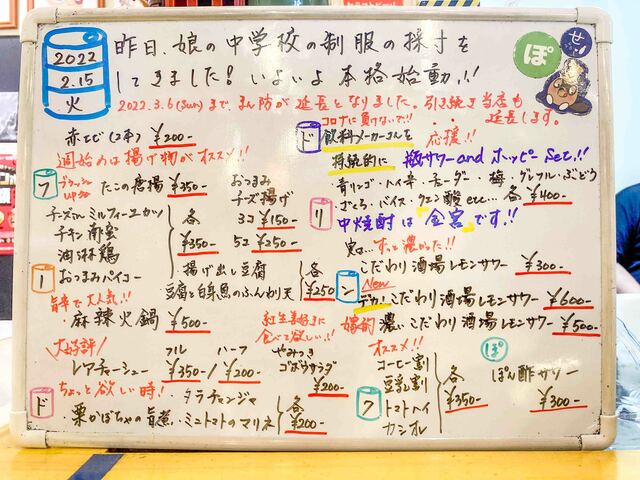 2022
2.15
火
昨日、娘の中学校の制服の採寸を
してきました! いよいよ本格始動!!!
ぽ
せ
2022.3.6(sun)まで、まん防が延長となりました。引き続き当店も
延長します。
赤えび(2本) ¥200-
週始めは揚げ物がオススメ!!
フ
ブラッシュup
たこの唐揚 ¥350-
おつまみ
チーズ揚げ
3コ ¥150-
5コ ¥250-
チキン南蛮
油淋鶏
各
¥350-
ー
おつまみパイコー
揚げ出し豆腐
豆腐と白身魚のふんわり天
各
¥250
旨辛で大人気!!
麻辣火鍋 ¥500-
紅生姜好きに
食べて欲しい!!
大好評!
レアチャーシュー
フル
¥350-/
ハーフ
¥200-
やみつき
ゴボウサラダ
¥200-
ド
ちょっと欲しい時!
・タラチャンジャ
・栗かぼちゃの旨煮
・ミニトマトのマリネ
各
¥200-
ド
コロナに負けないで!!
飲料メーカーさんを
応援!!
持続的に
梅サワー and ホッピー Set!!
・青リンゴ・ハイ辛・チューダー・梅・グレフル・ぶどう
・ざくろ・バイス・クエン酸 etc... 各 ¥400-
リ
中焼酎は「金宮」です!!
実は、ずっと濃かった!!
こだわり酒場レモンサワー ¥300-
ン
New
デカ!こだわり酒場レモンサワー ¥600-
濃いこだわり酒場レモンサワー ¥500-
オススメ!!
ク
コーヒー割
豆乳割
トマトハイ
カシオレ
各
¥350-
ぽ
ぽん酢サワー
¥300-